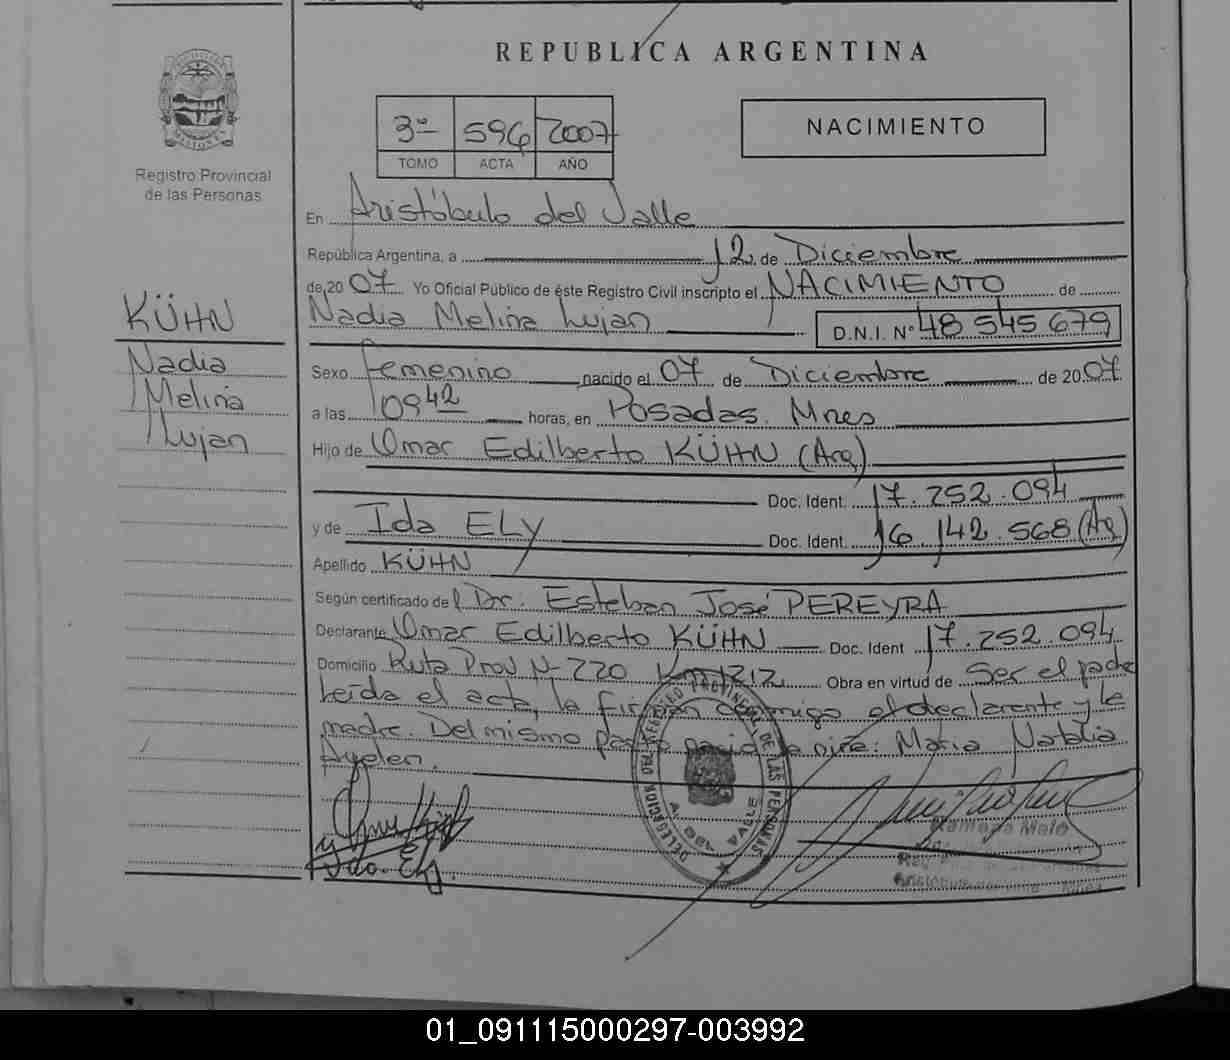 REPUBLICA ARGENTINA
Registro Provincial
de las Personas
3º 596 2007
TOMO ACTA AÑO
NACIMIENTO
En Aristóbulo del Valle
República Argentina, a 12 de Diciembre
de 20 07 Yo Oficial Público de éste Registro Civil inscripto el NACIMIENTO de
Nadia Melina Lujan D.N.I. Nº 48 545 679
KÜHN
Nadia
Melina
Lujan
Sexo femenino nacido el 07 de Diciembre de 20 07
a las 09 42 horas, en Posadas. Mnes
Hijo de Omar Edilberto KÜHN (Arg)
Doc. Ident. 17.252.094
y de Ida ELY Doc. Ident. 16.142.568 (Arg)
Apellido KÜHN
Según certificado del Dr. Esteban José PEREYRA
Declarante Omar Edilberto KÜHN Doc. Ident 17.252.094
Domicilio Ruta Prov Nº 220 Km 1212 Obra en virtud de Ser el padre
Leída el acta, la firman conmigo el declarante y la
madre. Del mismo parto nació la niña: Maria Natalia
Ayelen.
DELEGACION DEL REGISTRO PROVINCIAL DE LAS PERSONAS
A. DEL VALLE
01_091115000297-003992